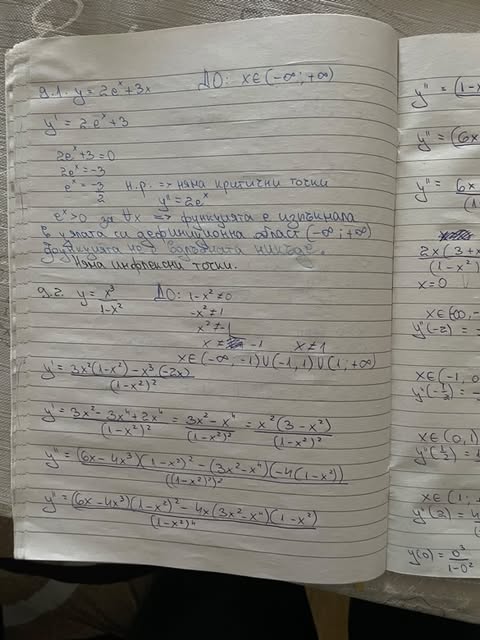 9.1. y = 2e^x + 3x ДО: x∈(-∞; +∞)
y' = 2e^x + 3
2e^x + 3 = 0
2e^x = -3
e^x = -3/2 н.р. => няма критични точки
y'' = 2e^x
e^x > 0 за ∀x => функцията е изпъкнала
в цялата си дефиниционна област (-∞; +∞)
функцията не е вдлъбната никъде.
Няма инфлексни точки.
9.2. y = x³/(1-x²) ДО: 1-x² ≠ 0
-x² ≠ 1
x² ≠ -1
x ≠ -1 x ≠ 1
x∈(-∞, -1)∪(-1, 1)∪(1; +∞)
y' = (3x²(1-x²) - x³(-2x))/(1-x²)²
y' = (3x² - 3x⁴ + 2x⁴)/(1-x²)² = (3x² - x⁴)/(1-x²)² = x²(3-x²)/(1-x²)²
y'' = ((6x - 4x³)(1-x²)² - (3x² - x⁴)(-4(1-x²)))/((1-x²)²)²
y'' = ((6x - 4x³)(1-x²)² - 4x(3x² - x⁴)(1-x²))/(1-x²)⁴
y'' = (1-x
y'' = (6x
y'' = 6x
2x(3+x
(1-x²)
x=0
y''(-2) =
x∈(-1, 0
x∈(0, 1)
x∈(1; +
y''(2) = 4
y(0) = 0³/(1-0²)